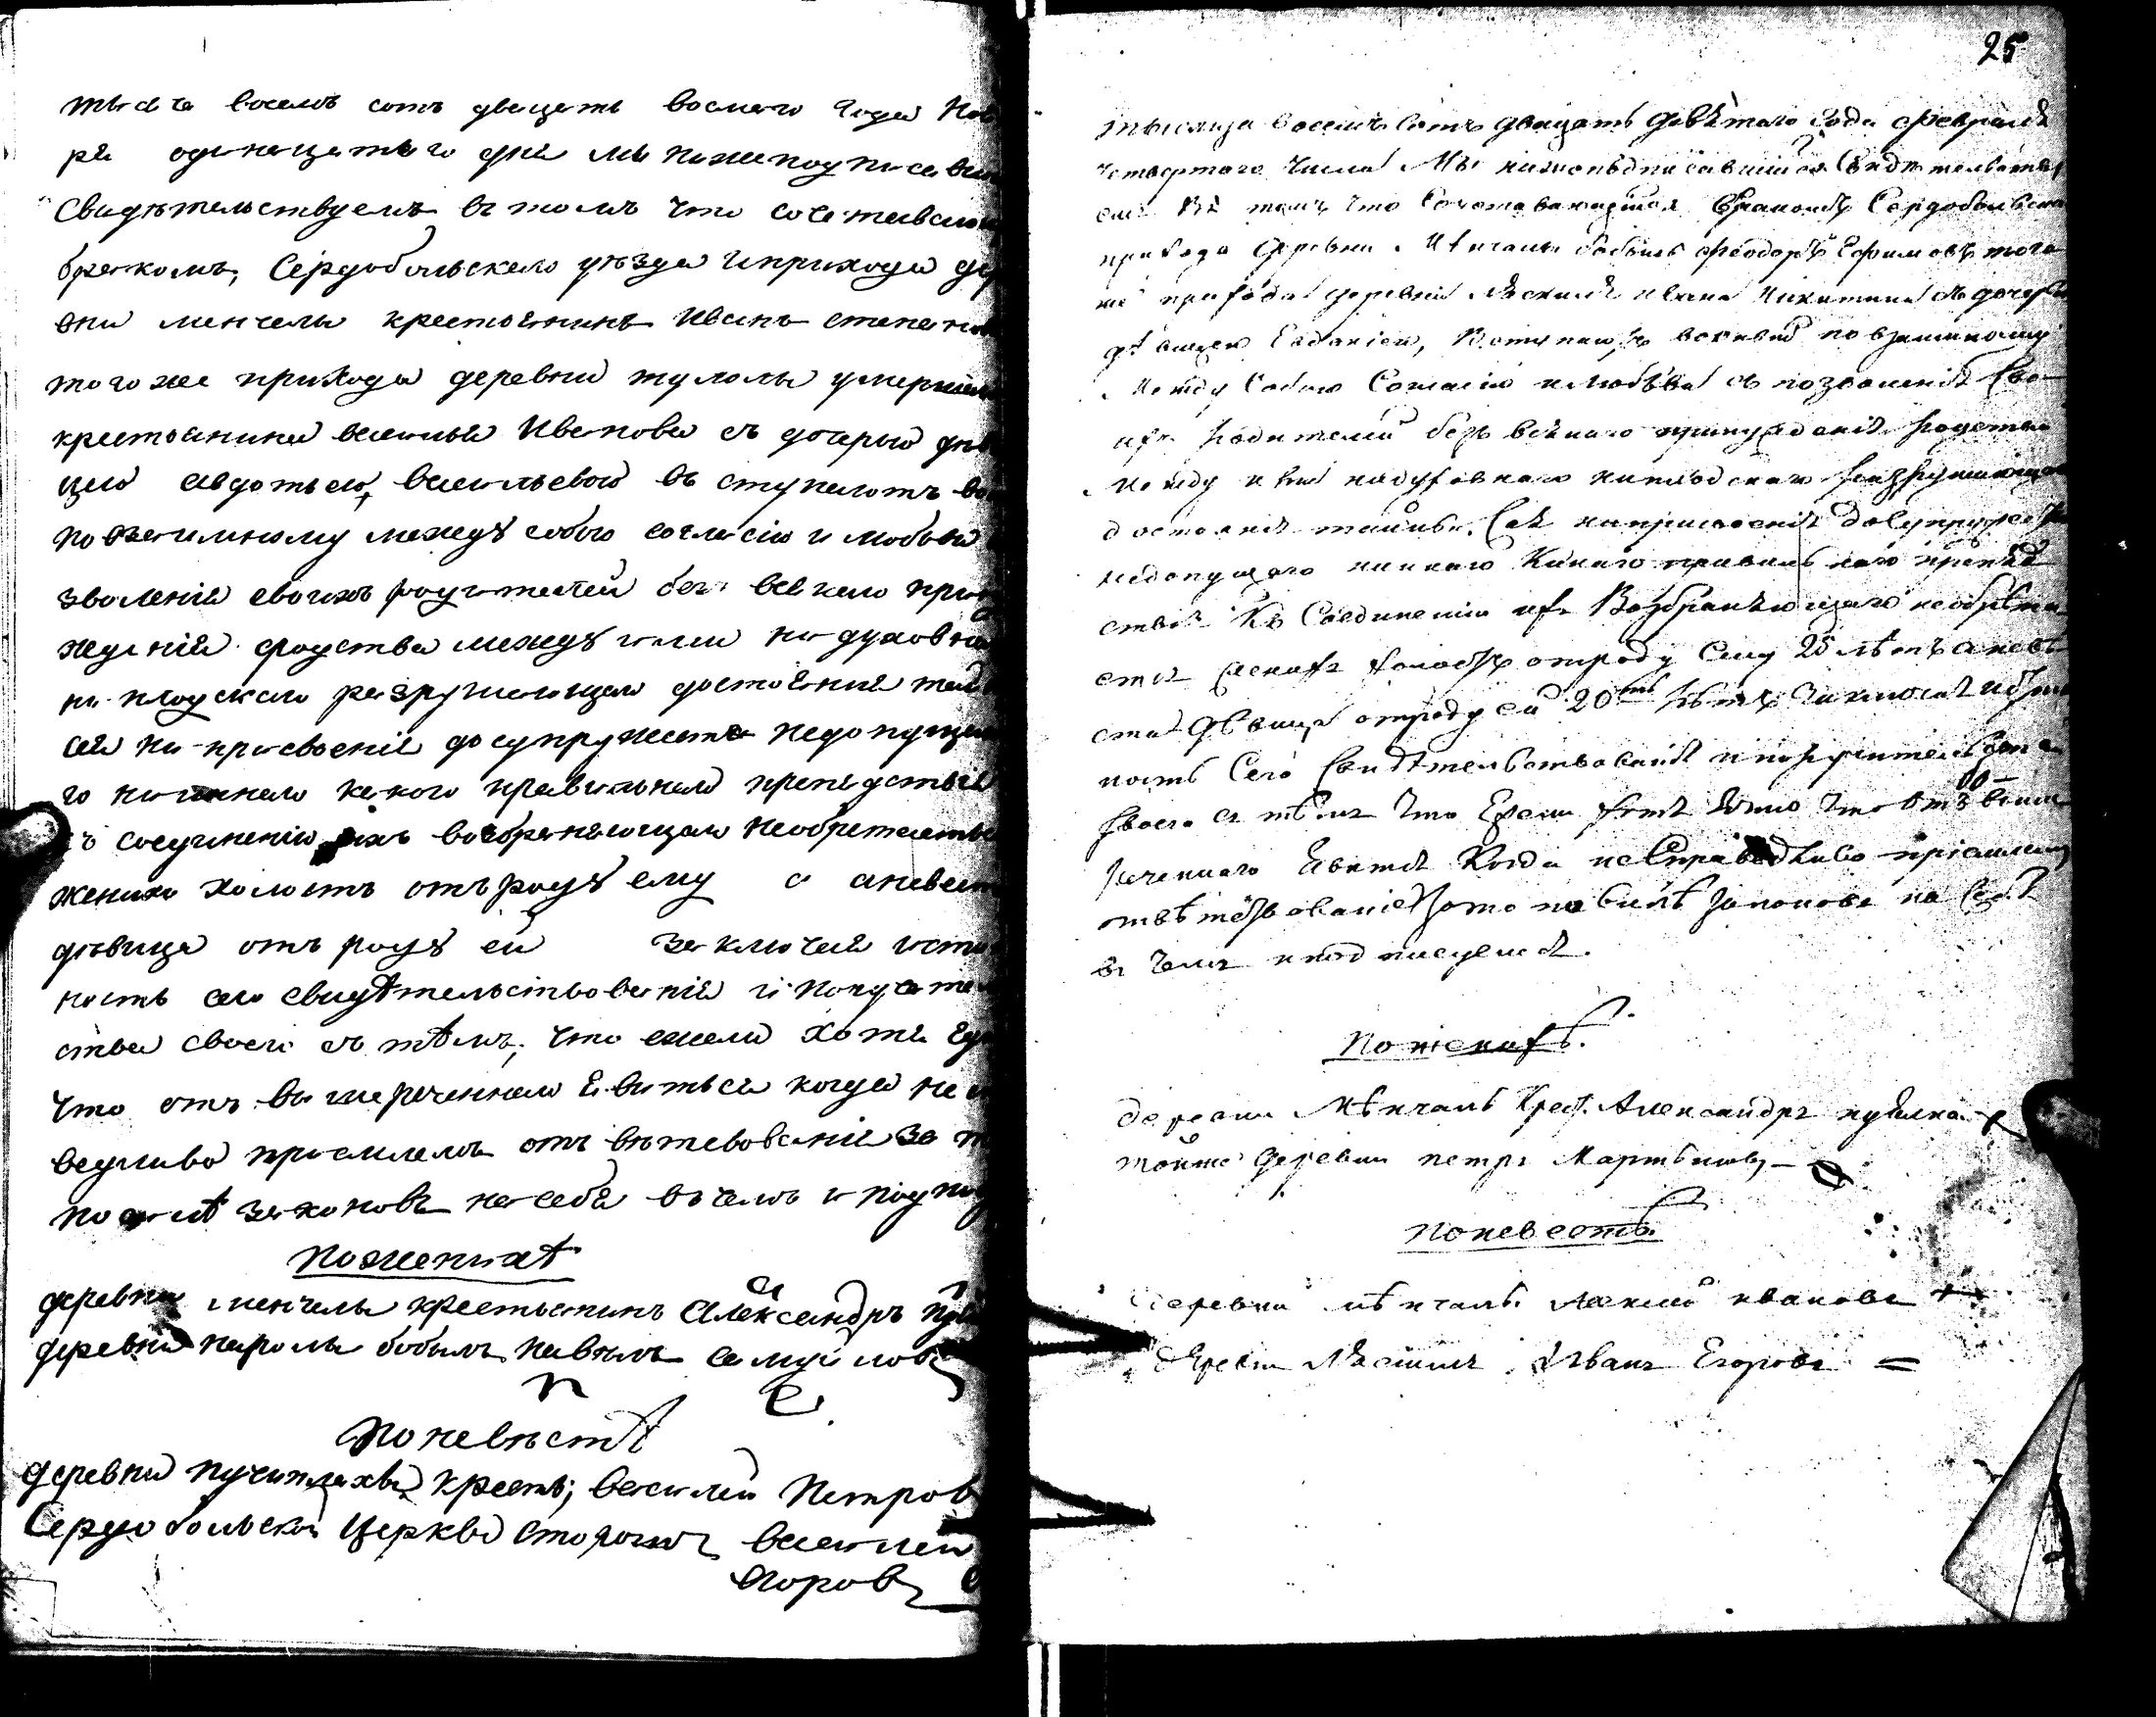 тысяча восемъ сотъ двацеть восмаго года Ноя
ря одинацетаго дня мы нижеподписавши
Свидѣтельствуемъ въ томъ что сочетаваю
бракомъ, Сердобольскаго уѣзда и прихода де
вни менчелы крестьянинъ Иванъ степанов
того же прихода деревни тулолы умершаго
крестьянина василья Иванова съ дочерью дѣв
цею авдотьею, васильевой въ ступаютъ во
по взаимному между собою согласію и любови
зволенія своихъ родителей безъ всякаго прин
жденія сродства между ими ни духовна
ни плодскаго разрушающаго достоянія таи
сея ни присвоенія до супружества недопущаю
го ни инаго какого правильнаго препядствія
къ соединенію ихъ возбраняющаго необретаеться
женихъ холостъ отъ роду ему а невест
дѣвица отъ роду ей заключая исти
ность сего свидѣтельствованія и поручите
ства своего съ тѣмъ, что ежели хотя еди
что отъ вышереченнаго явиться когда не
ведливо приемлемъ отъ вѣтсвованіе за т
по силѣ законовъ на себя въ чемъ и подпи
По женихѣ
деревни менчелы крестьянинъ Александръ
деревни паролы бобыль павелъ самуйловъ
По невѣстѣ
деревни крестъ; василей Петров
Сердобольской Церкви сторожъ василей
Егоровъ
25
тысяща восемъ сотъ двацать девѣтаго года февраля
четвертаго числа Мы нижеподписавшіися свидѣтельствуе
емъ Въ томъ что Сочетавающійся бракомъ Сердобольскаго
прихода деревни Мѣнчалы бобыль Феодоръ Ефимовъ того
же прихода деревни Ляскиля ивана Никитина съ дочерью
дѣвицею Евдокіею, Вступаютъ во оный по взаимному
Между Собою Согласію и любьви съ позволенія Сво
ихъ Родителей безъ всякаго принужденія Родства
между ими ни духовнаго ни плодскаго разрушающаго
достояніе тайны Сея ни присвоенія до супружества
недопущаго ни инаго Какаго правильнаго препяд
ствія Къ Соединенію ихъ Возбраняющаго не обрѣта
ется Женихъ холостъ отроду Ему 25 лѣтъ а невѣ
ста дѣвица отроду ей 20ть лѣтъ Заключая истин
ность Сего Свидѣтельствованія и поручительства
своего съ тѣмъ что Ежели хотя Едино что отъ выше
реченнаго Явится Когда не Справедливо пріемлемъ
отвѣтсвованіе зато по силѣ законовъ на Себя
въ чемъ и подписуемся.
По женихѣ.
деревни Мѣнчалы Крест. Александръ
тойже деревни петръ Мартыновъ
По невестѣ.
Деревни мѣнчалы иванове +
Деревни Ляскиля Иванъ Егорове =